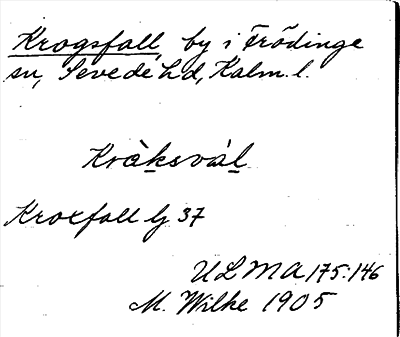 Krogsfall, by i Frödinge
sn, Sevede hd, Kalm. l.
Kràksvál
Kroxfall lj 37
ULMA 175:146
M. Wilke 1905